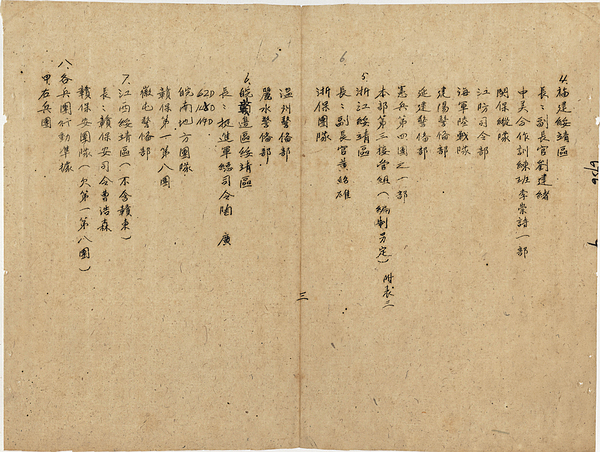 4.福建綏靖區
長：副長官劉建緒
中美合作訓練班李崇詩一部
閩保縱隊
江防司令部
海軍陸戰隊
建陽警備部
延建警備部
憲兵第四團之一部
本部第三接管組（編制另定）附表二
5.浙江綏靖區
長：副長官黃紹雄
浙保團隊
溫州警備部
麗水警備部
6.皖贛邊區綏靖區
長：挺進軍總司令陶 廣
62D 50D 190
皖南地方團隊
贛保第一第八團
徽屯警備部
7.江西綏靖區（不含贛東）
長：贛保安司令曹浩森
贛保安團隊（欠第一第八團）
八.各兵團行動準據
甲右兵團
三